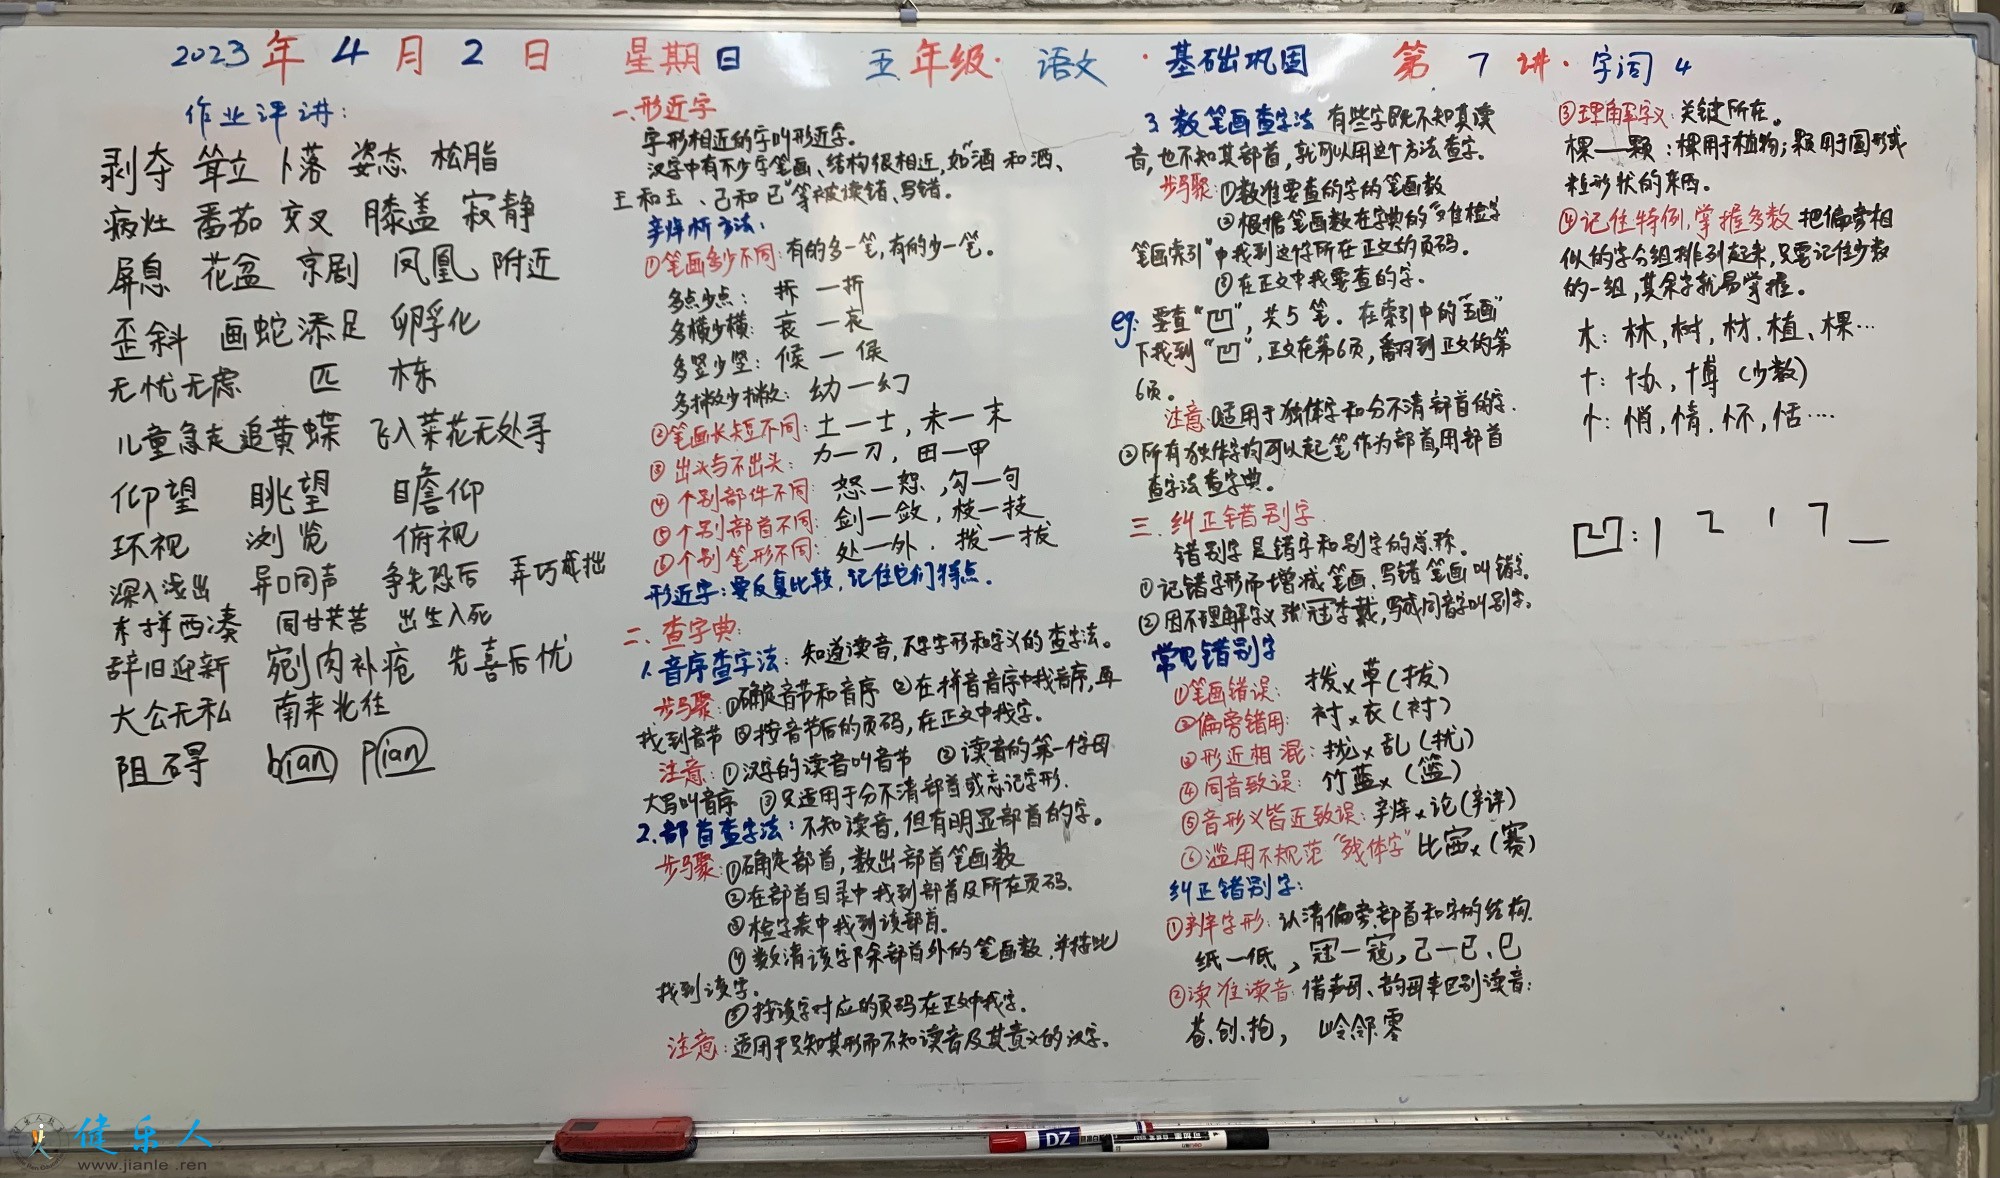 2023年4月2日 星期日 五年级·语文·基础巩固 第7讲·字词4
作业评讲:
剥夺 耸立 卜落 姿态 松脂
病灶 番茄 交叉 膝盖 寂静
屏息 花盆 京剧 凤凰 附近
歪斜 画蛇添足 孵化
无忧无虑 匹 栋
儿童急走追黄蝶 飞入菜花无处寻
仰望 眺望 瞻仰
环视 浏览 俯视
深入浅出 异口同声 争先恐后 弄巧成拙
东拼西凑 同甘共苦 出生入死
辞旧迎新 剜肉补疮 先喜后忧
大公无私 南来北往
阻碍 bian pian
一、形近字
字形相近的字叫形近字。
汉字中有不少字笔画、结构很相近,如"酒和洒、
王和玉、己和已"等被读错、写错。
辛辨析方法:
①笔画多少不同:有的多一笔,有的少一笔。
多点少点: 拆一折
多横少横: 衰一哀
多竖少竖: 候一侯
多撇少撇: 幼一幻
②笔画长短不同:土一士,未一末
③出头与不出头: 力一刀,田一甲
④个别部件不同: 怒一恕,勾一句
⑤个别部首不同: 剑一敛,枝一技
⑥个别笔形不同: 处一外.拨一拔
形近字:要反复比较,记住它们特点.
二、查字典:
1.音序查字法: 知道读音,不学字形和字义的查字法。
步骤:①确定音节和音序 ②在拼音音序中找音序,再
找到音节 ③按音节后的页码,在正文中找字。
注意:①汉字的读音叫音节 ②读音的第一个字母
大写叫音序 ③只适用于分不清部首或忘记字形.
2.部首查字法:不知读音,但有明显部首的字。
步骤:①确定部首,数出部首笔画数
②在部首目录中找到部首及所在页码.
③检字表中找到该部首.
④数清该字除部首外的笔画数,并按此
找到该字。
⑤按该字对应的页码在正文中找字.
注意:适用于只知其形而不知读音及其意义的汉字。
3.数笔画查字法 有些字既不知其读
音,也不知其部首,就可以用这个方法查字。
步骤:①数准要查的字的笔画数
②根据笔画数在字典的"难检字
笔画索引"中找到这个字所在正文的页码。
③在正文中找要查的字.
eg: 要查"凹",共5笔。在索引中的"五画"
下找到"凹",正文在第6页,翻到正文的第
6页。
注意:①适用于独体字和分不清部首的字.
②所有独体字均可以起笔作为部首,用部首
查字法查字典。
三、纠正错别字.
错别字是错字和别字的总称。
①记错字形而增减笔画、写错笔画叫错字。
②因不理解字义张冠李戴,写成同音字叫别字。
常见错别字
①笔画错误: 拨×草(拔)
②偏旁错用: 衬×衣(衬)
③形近相混: 拢×乱(扰)
④同音致误: 竹蓝×(篮)
⑤音形义皆近致误:辨×论(辩)
⑥滥用不规范"残体字"比宻×(赛)
纠正错别字:
①辨字形:认清偏旁部首和字的结构.
纸一低,冠一寇,己一已、巳
②读准读音:借声母、韵母来区别读音:
苍.创.抢, 岭邻零
③理解字义:关键所在。
棵一颗:棵用于植物;颗用于圆形或
粒形状的东西。
④记住特例,掌握多数 把偏旁相
似的字分组排列起来,只要记住少数
的一组,其余字就易掌握。
木:林,树,材.植、棵…
十:协,博(少数)
忄:悄,情.怀,恬…
凹:丨 ㄱ 丨 ㄱ 一
DZ
健乐人
www.jianle.ren